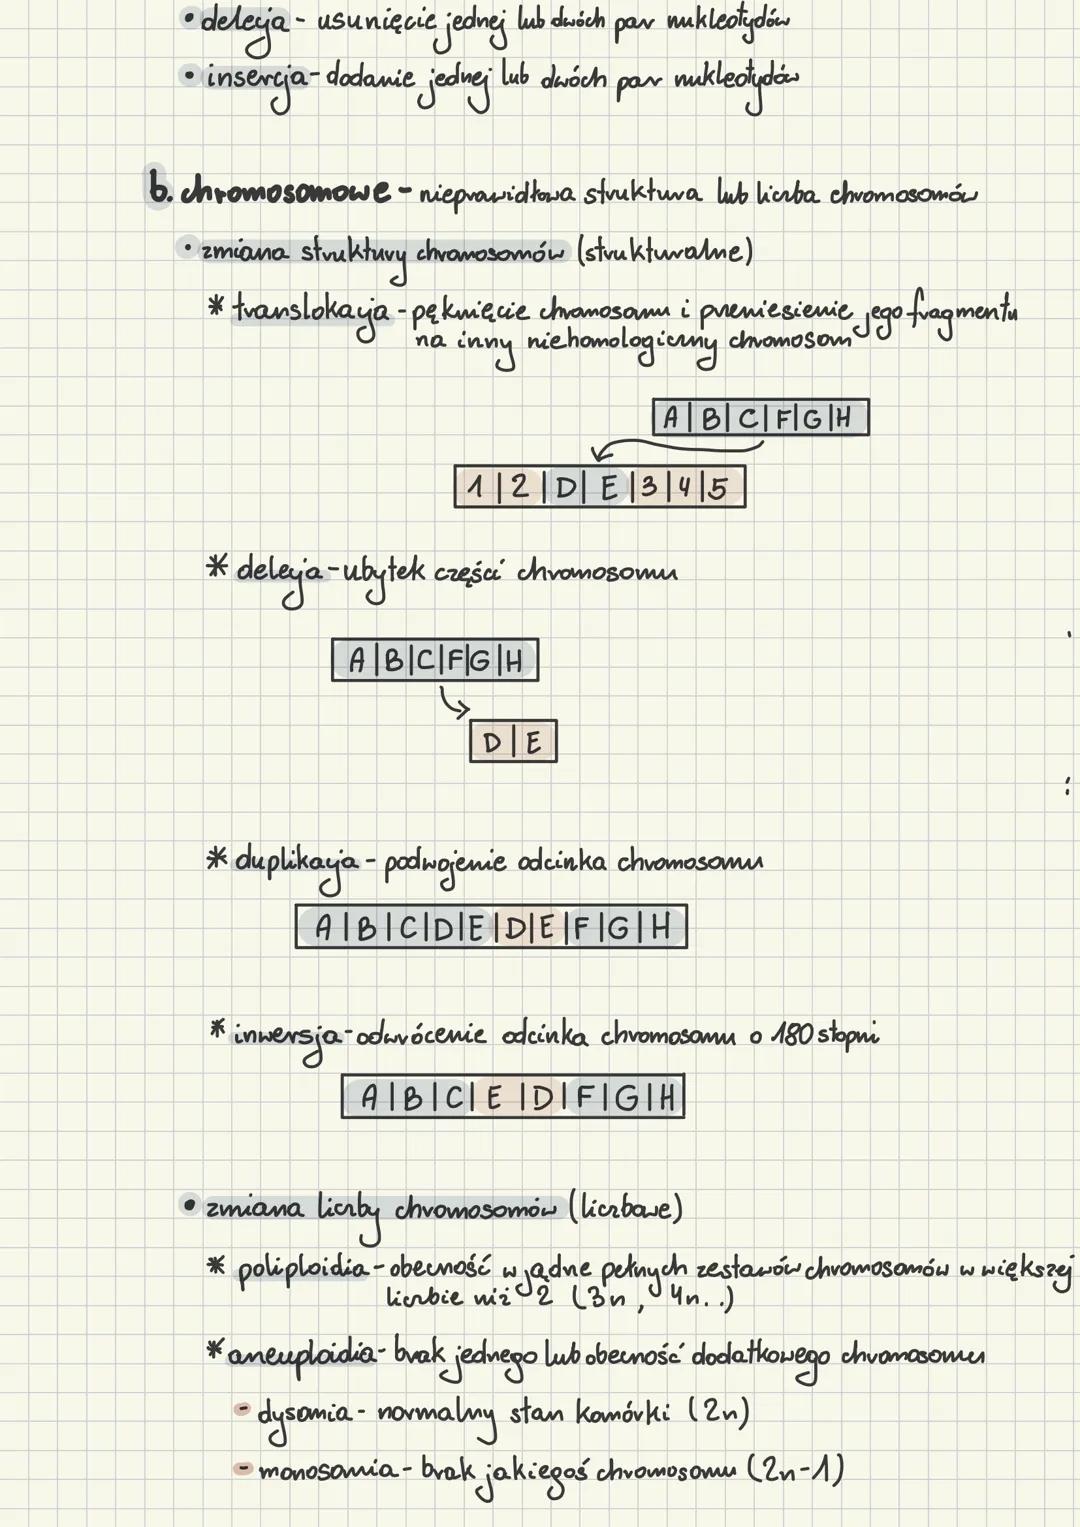 • delecja - usunięcie jednej lub dwóch par nukleotydów
• insercja - dodanie jednej lub dwóch par nukleotydów
b. chromosomowe - nieprawidłowa struktura lub liczba chromosomów
• zmiana struktury chromosomów (strukturalne)
* translokacja - pęknięcie chromosomu i przeniesienie jego fragmentu
na inny niehomologiczny chromosom
A|B|C|F|G|H
1|2|D|E|3|4|5
* delecja - ubytek części chromosomu
A|B|C|F|G|H
D|E
* duplikacja - podwojenie odcinka chromosomu
A|B|C|D|E|D|E|F|G|H
* inwersja - odwrócenie odcinka chromosomu o 180 stopni
A|B|C|E|D|F|G|H
• zmiana liczby chromosomów (liczbowe)
* poliploidia - obecność w jądrze pełnych zestawów chromosomów w większej
liczbie niż 2 (3n, 4n..)
* aneuploidia - brak jednego lub obecność dodatkowego chromosomu
- dysomia - normalny stan komórki (2n)
- monosomia - brak jakiegoś chromosomu (2n-1)